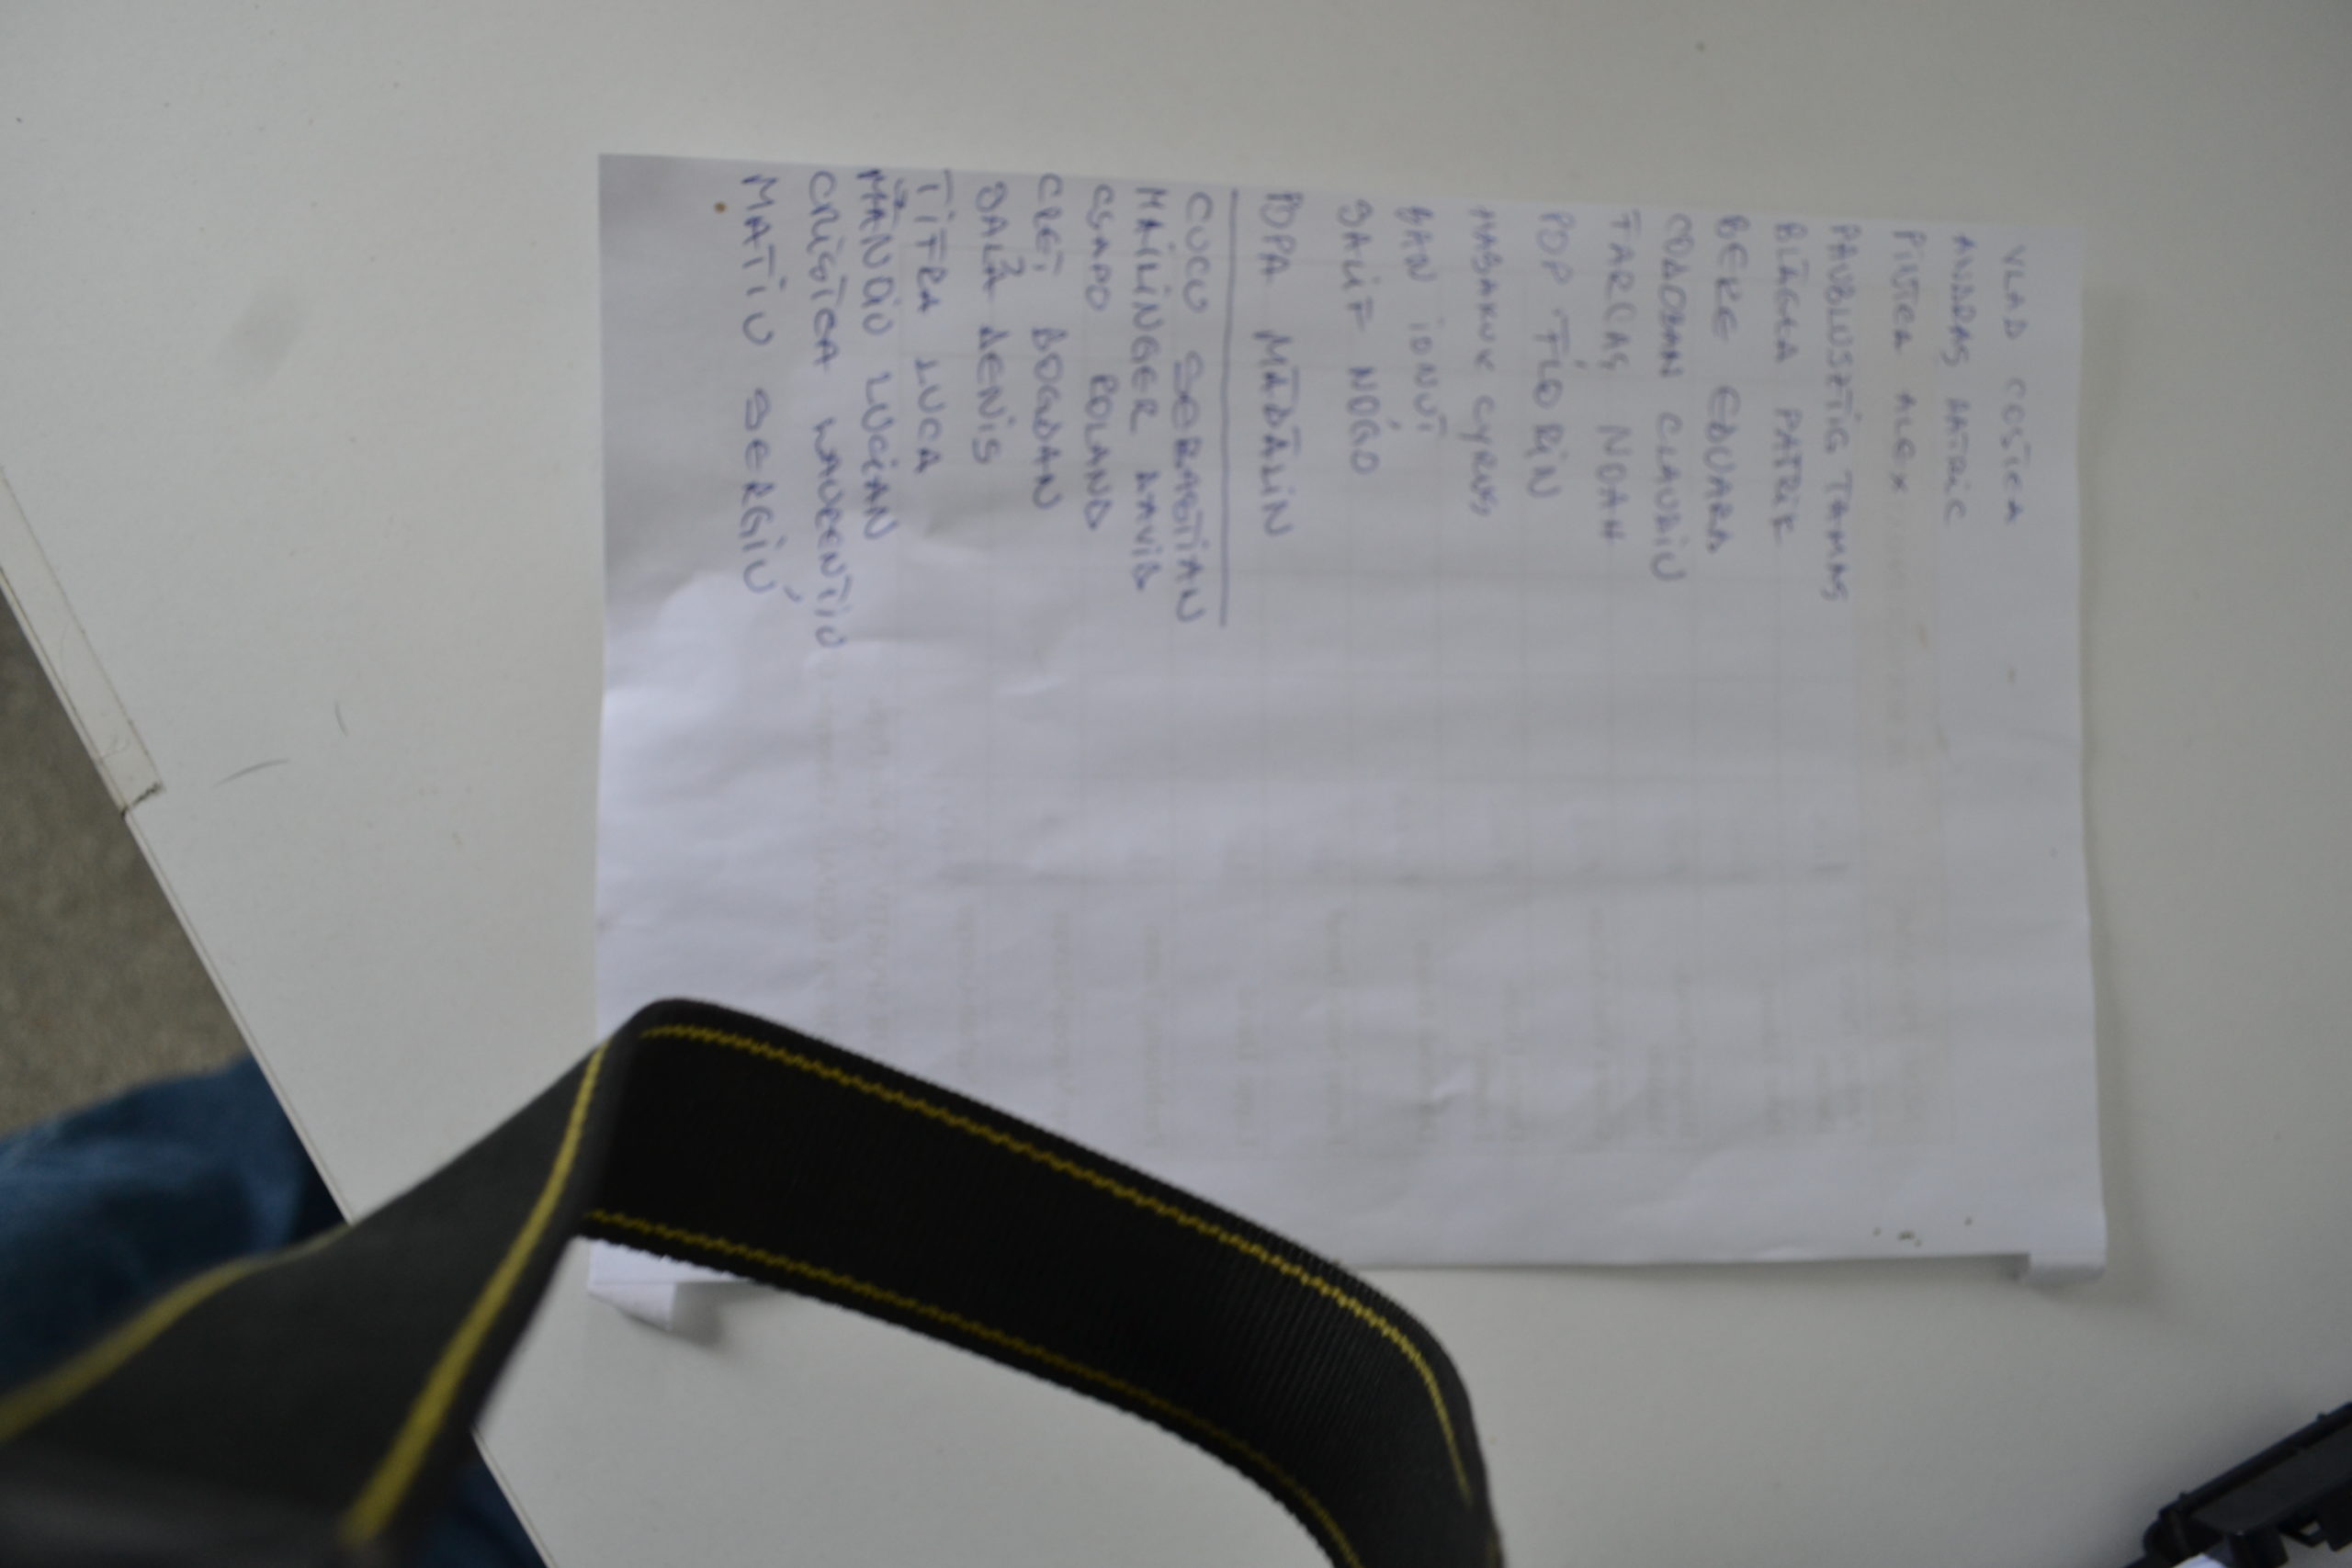 VLAD COSTICA
ANDRAȘ PATRIC
PINTEA ALEX
PAUBLUSZTIG TAMAS
BLAGEA PATRIK
BERE EDUARD
CODOBAN CLAUDIU
FARCAȘ NOAH
POP FLORIN
HABAKUK CYRUS
BAN IONUȚ
GALIF
POPA MĂDĂLIN
CUCU SEBASTIAN
MAILINGER DAVID
CSAPO ROLAND
CREȚ BOGDAN
DENIS
TITRA LUCA
LUCIAN
CRISTEA LAURENTIU
MATIU SERGIU